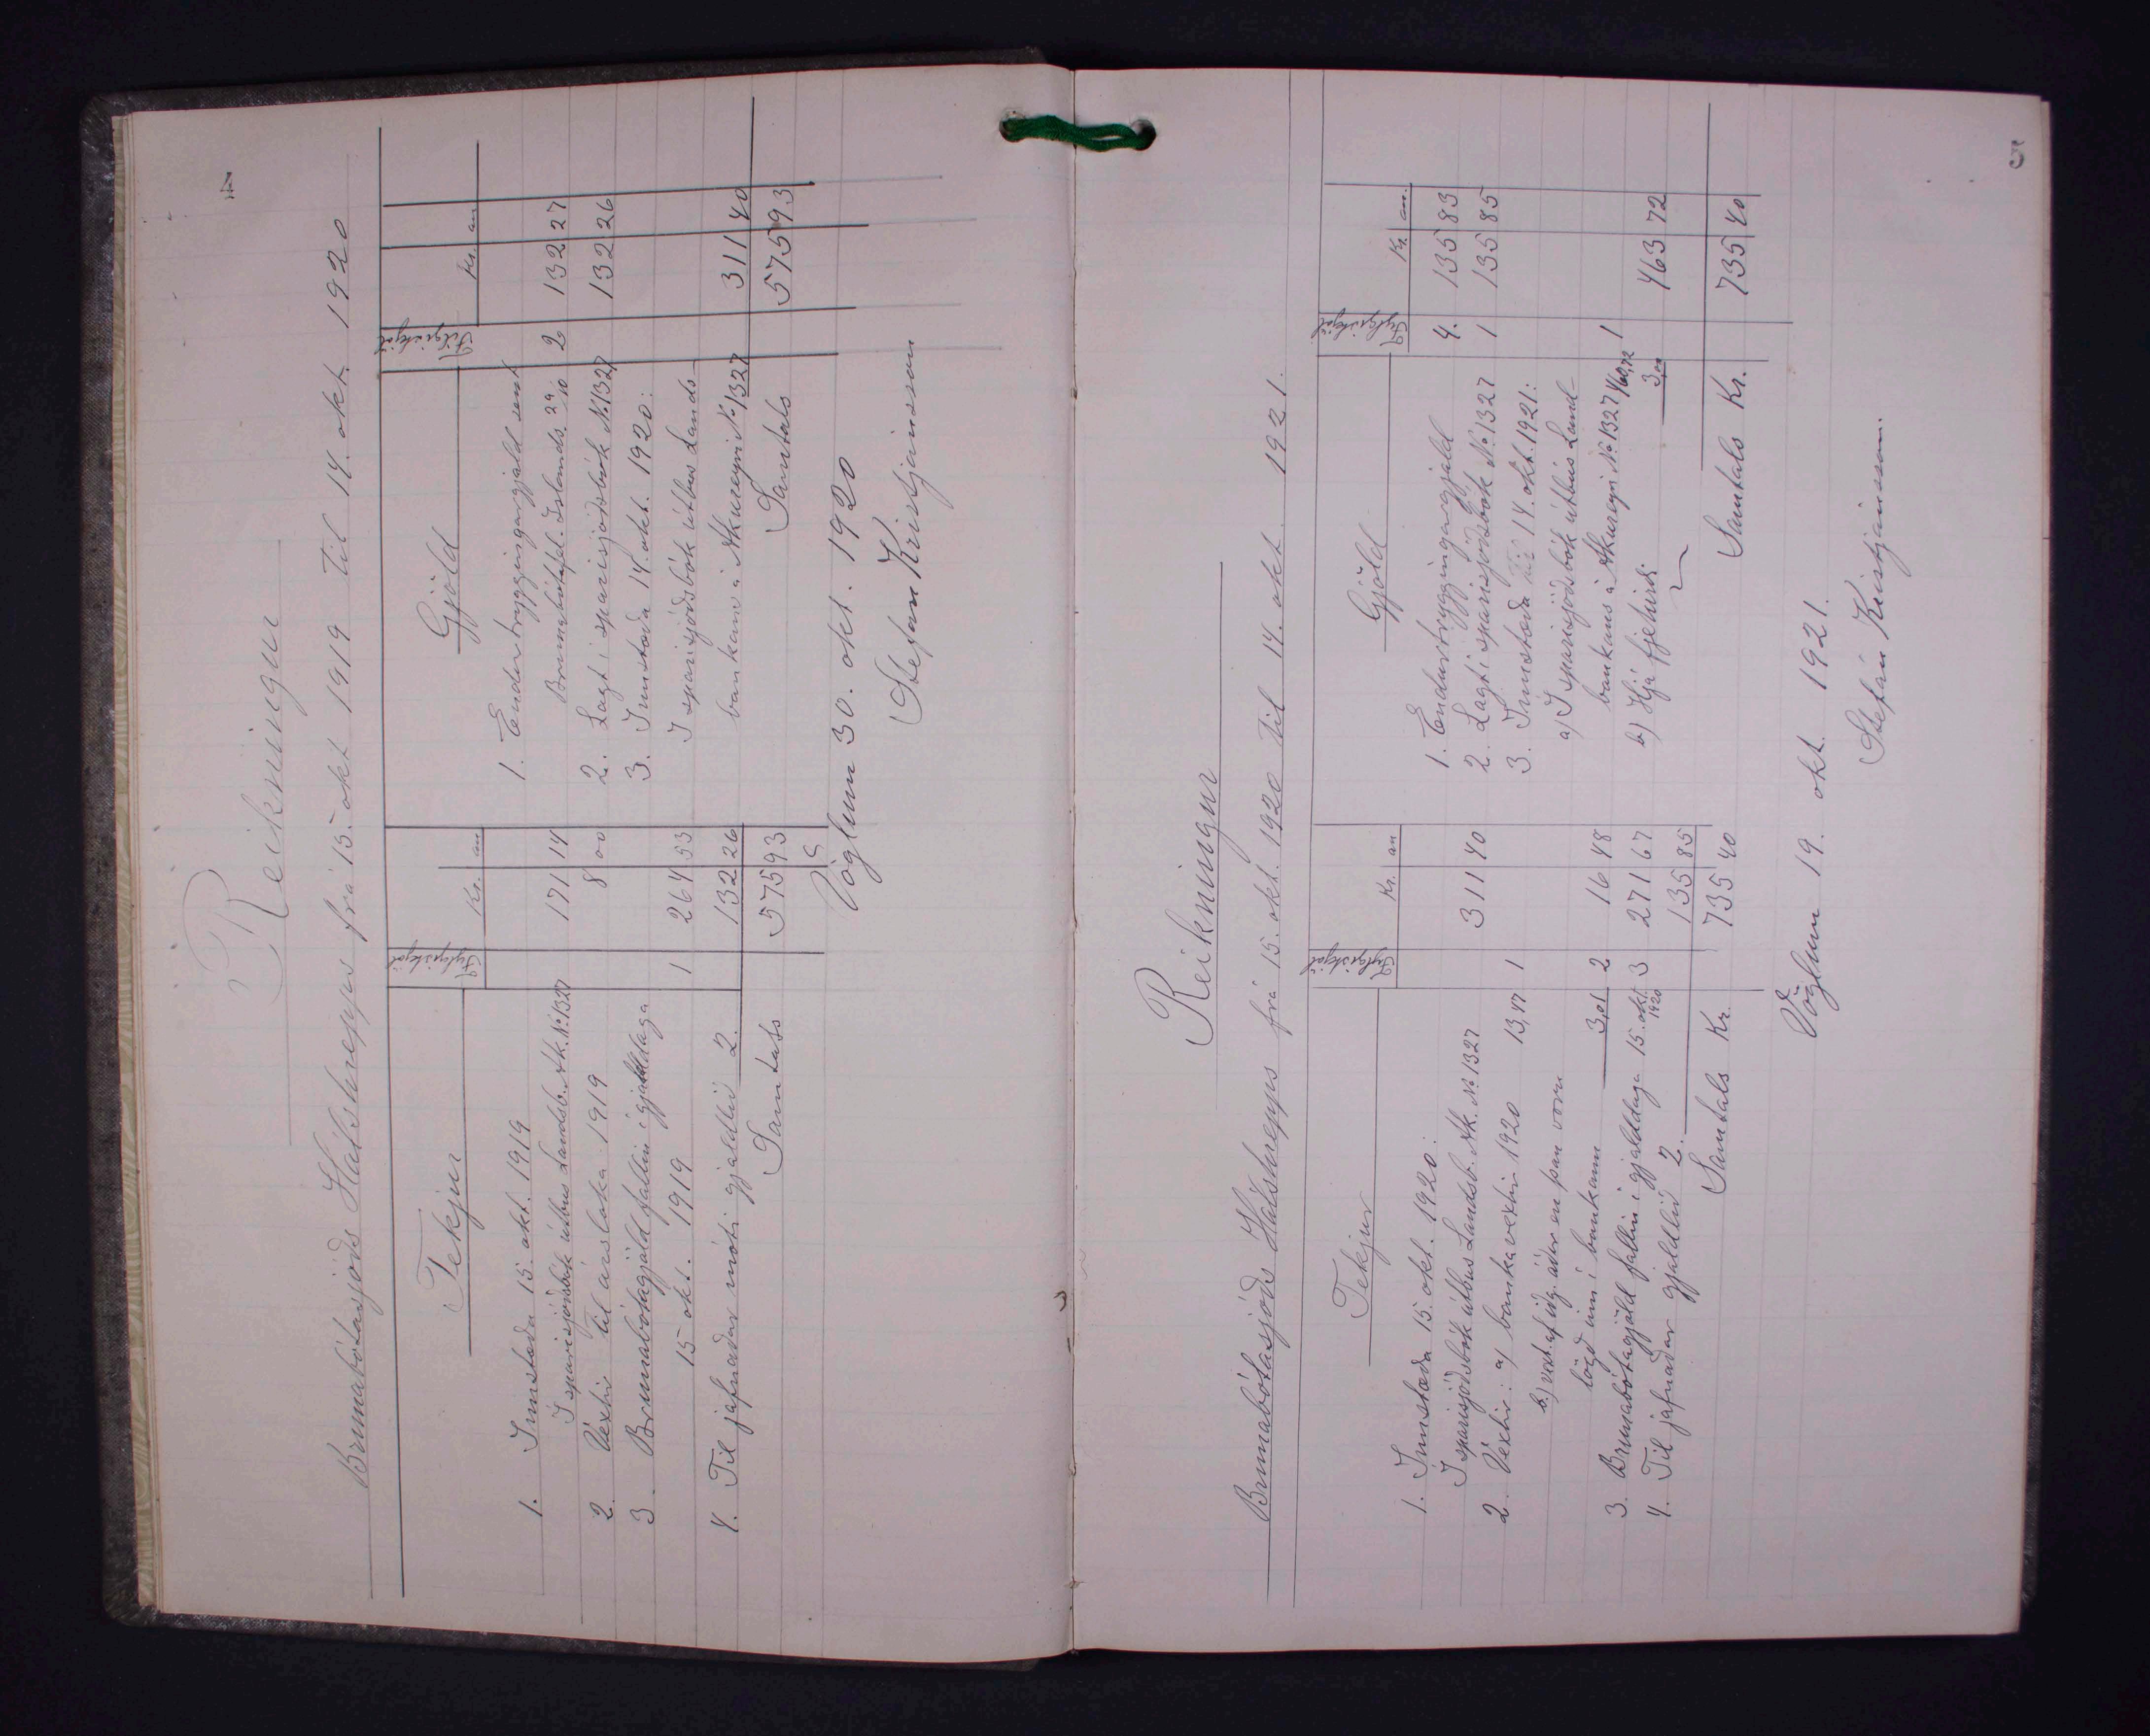 4
Reikningur
Brunabótasjóðs Hálshrepps frá 15. okt 1919 til 14. okt. 1920
Tekjur
Fylgiskjöl
Kr. au
1. Innstæða 15. okt. 1919
Í sparisjóðsbók útbús Landsb. Ak. No 1327 171 14
2. Vextir til ársloka 1919 8 00
3. Brunabótagjöld fallin í gjalddaga
15 okt. 1919 1 264 53
4. Til jafnaðar móti gjaldlið 2. 132 26
Samtals 575 93
Gjöld
Fylgiskjöl
Kr. au
1. Endurtryggingargjald sent
Brunabótafél. Íslands 29/10 2 132 27
2. Lagt í sparisjóðsbók No 1327 132 26
3. Innstæða 14. okt. 1920:
Í sparisjóðsbók útbús Lands-
bankans á Akureyri No 1327 311 40
Samtals 575 93
Vöglum 30. okt. 1920
Stefán Kristjánsson
5
Reikningur
Brunabótasjóðs Hálshrepps frá 15. okt. 1920 til 14. okt. 1921.
Tekjur
Fylgiskjöl
Kr. au
1. Innstæða 15. okt. 1920:
Í sparisjóðsbók útbús Landsb. Ak. No 1327 311 40
2. Vextir: a) bankavextir 1920 13,47 1
b) vext. af iðg. áður en þau voru
lögð inn í bankann 3,01 2 16 48
3. Brunabótagjöld fallin í gjalddaga 15. okt. 1920 3 271 67
4. Til jafnaðar gjaldlið 2. 135 85
Samtals Kr. 735 40
Gjöld
Fylgiskjöl
Kr. au.
1. Endurtryggingargjald 4. 135 83
2. Lagt í sparisjóðsbók No 1327 1 135 85
3. Innstæða 14. okt. 1921:
a) Í sparisjóðsbók útbús Land-
bankans á Akureyri No 1327 460,72 1
b) Hjá fjehirði 3,00 463 72
Samtals Kr. 735 40
Vöglum 19. okt. 1921.
Stefán Kristjánsson.